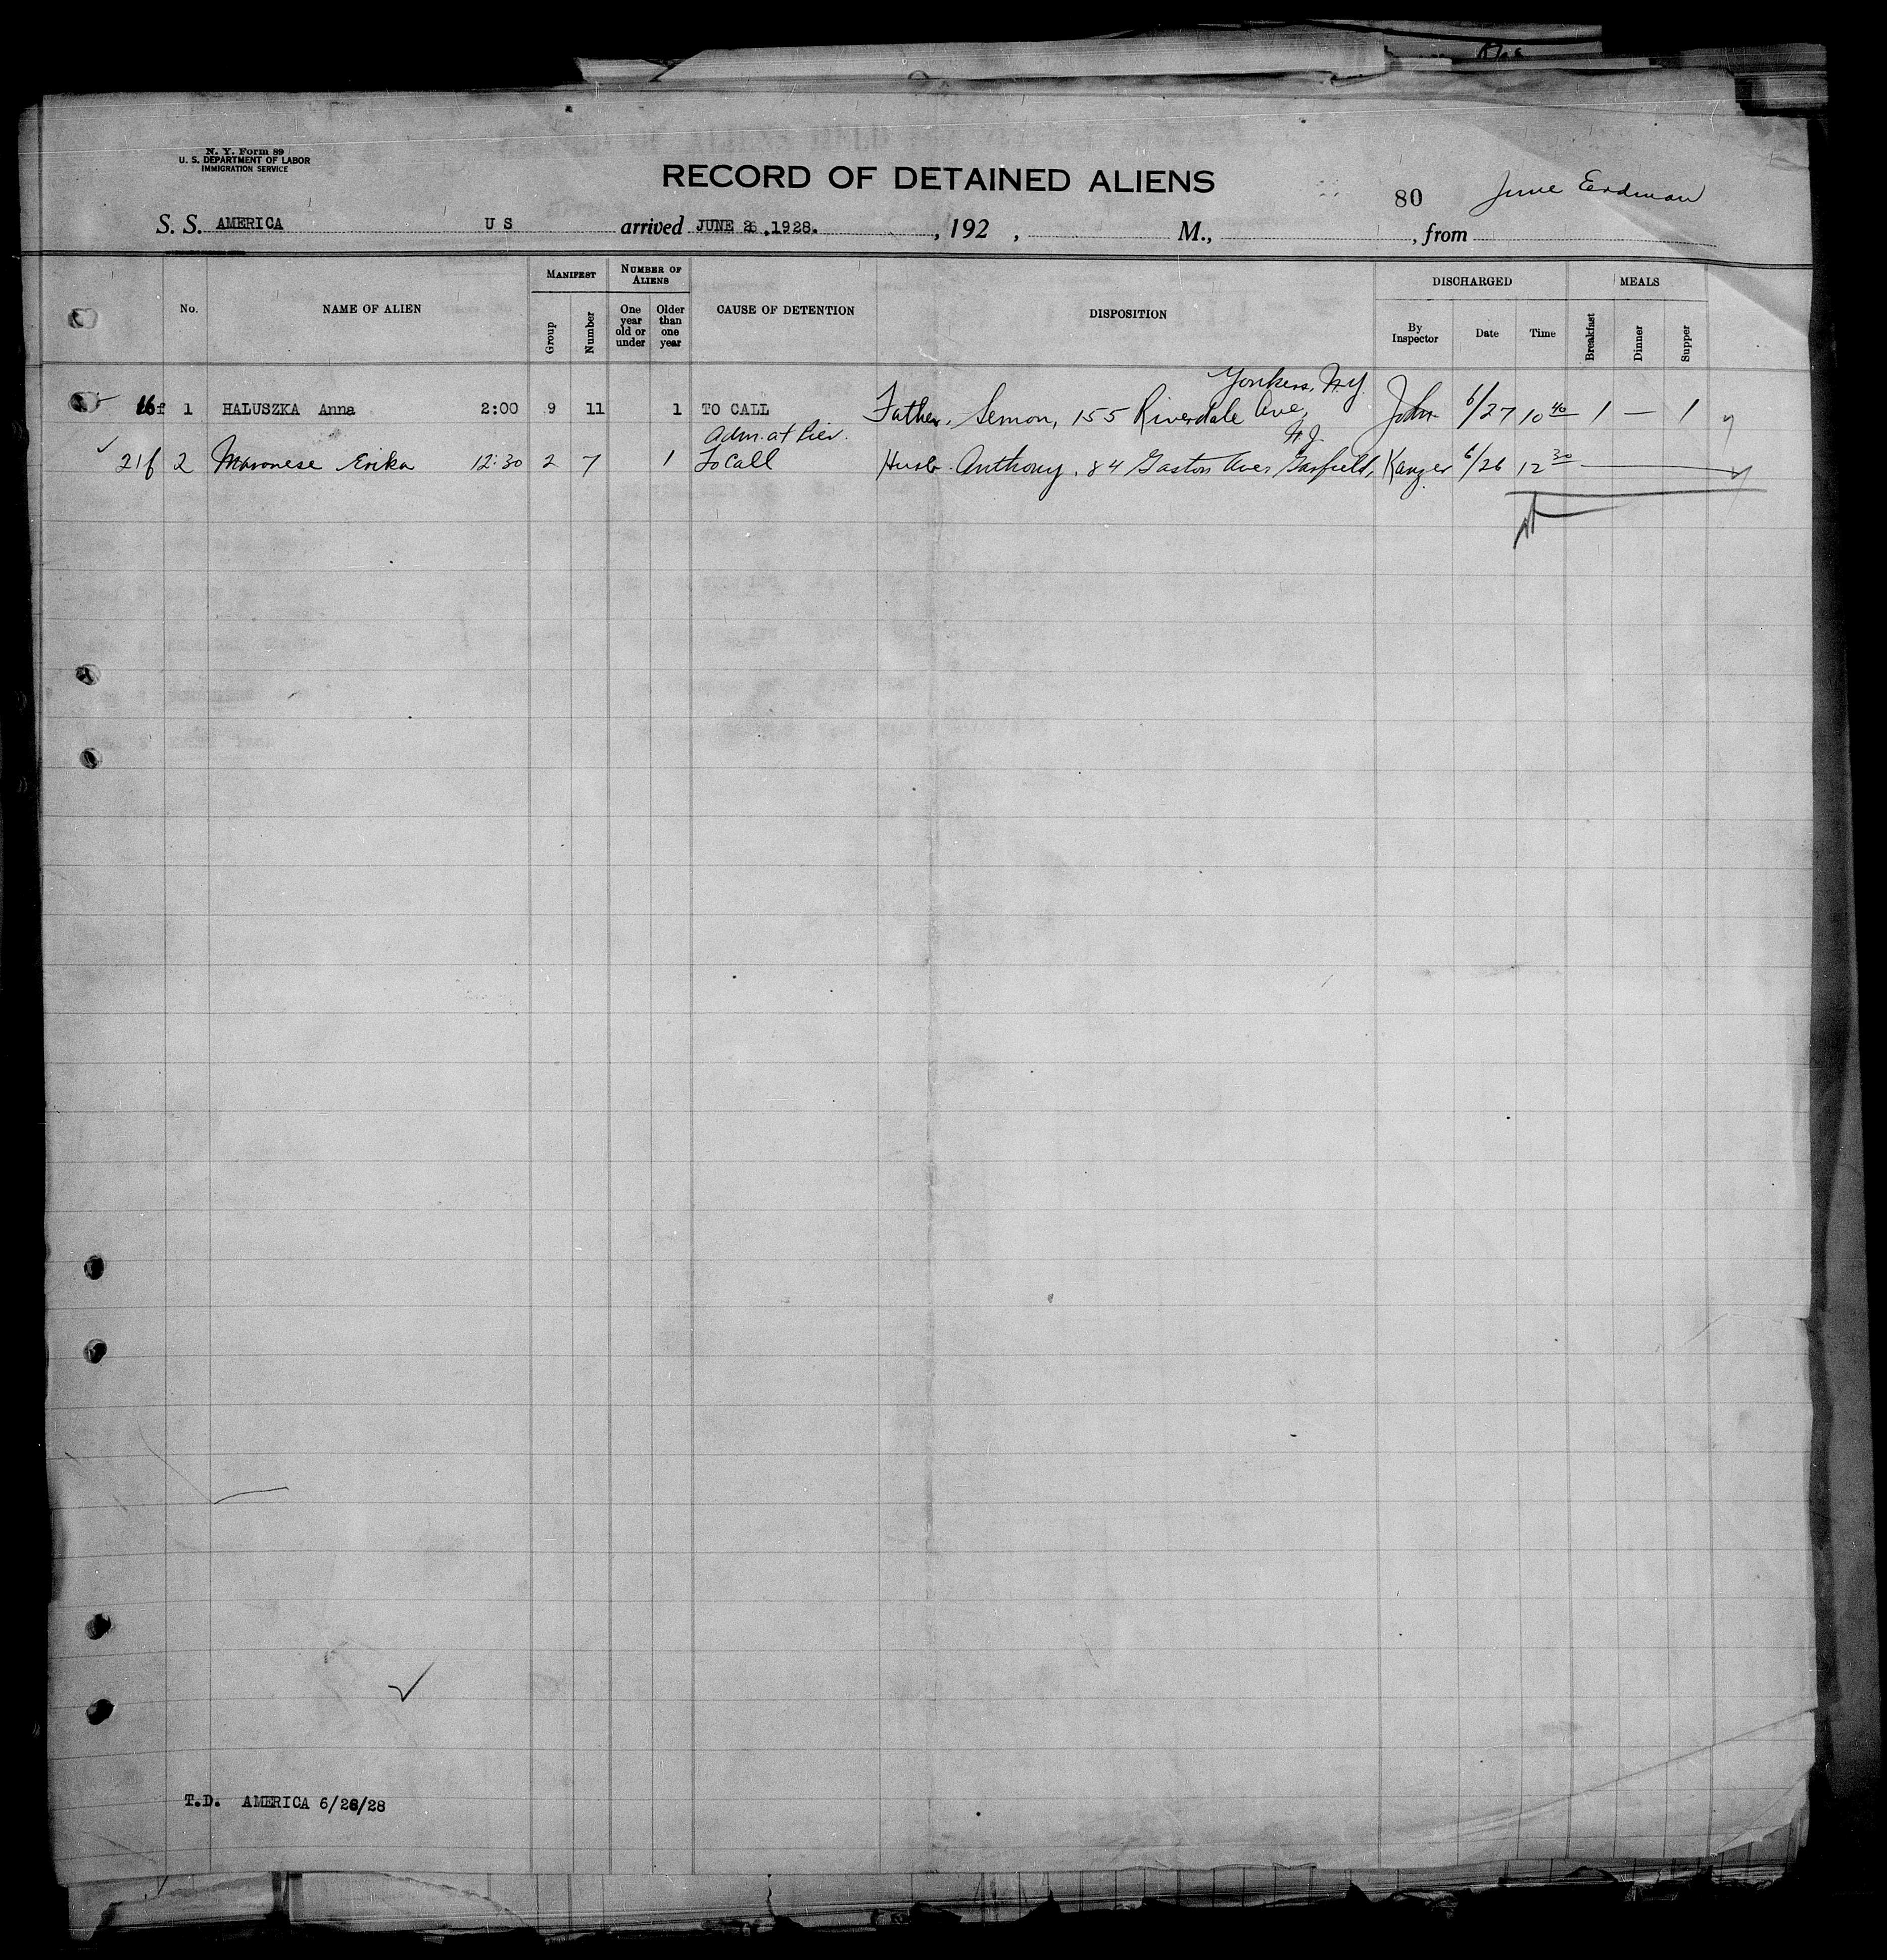 N. Y. Form 89
U. S. DEPARTMENT OF LABOR
IMMIGRATION SERVICE
RECORD OF DETAINED ALIENS
80 June Erdman
S. S. AMERICA U S arrived JUNE 26, 1928. , 192 , M., , from
No. NAME OF ALIEN MANIFEST NUMBER OF ALIENS CAUSE OF DETENTION DISPOSITION DISCHARGED MEALS
Group Number One year old or under Older than one year By Inspector Date Time Breakfast Dinner Supper
Yonkers, N.Y.
16f 1 HALUSZKA Anna 2:00 9 11 1 TO CALL Father, Semon, 155 Riverdale Ave, John 6/27 10 40 1 — 1
Adm. at Pier. N.J.
21f 2 Maronese Erika 12:30 2 7 1 To Call Husb. Anthony, 84 Gaston Ave, Garfield, 6/26 12 30
T.D. AMERICA 6/26/28